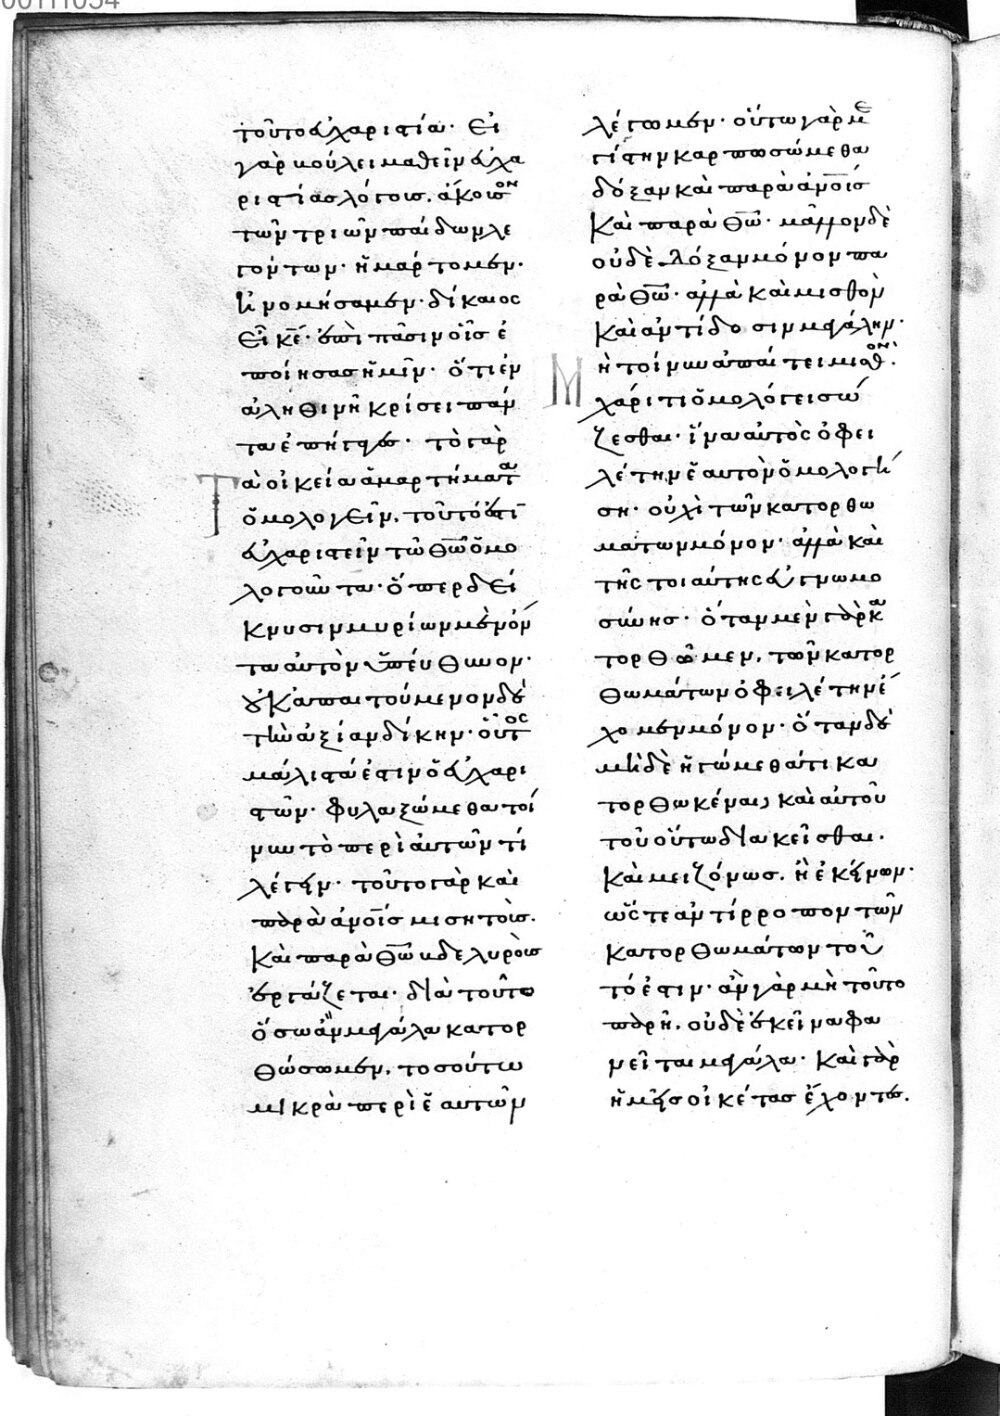 00111034
τοῦτο εὐχαριστία· Εἰ
γὰρ βούλει μαθεῖν εὐχα
ριστίας λόγους, ἄκουσον
τῶν τριῶν παίδων λε
γόντων· ἡμάρτομεν·
ἠνομήσαμεν· δίκαιος
εἶ κε̅· ἐπὶ πᾶσιν οἷς ἐ
ποίησας ἡμῖν· ὅτι ἐν
ἀληθινῆ κρίσει πάν
τα ἐπήγαγες· τὸ γὰρ
τὰ οἰκεία ἁμαρτήματα
ὁμολογεῖν, τοῦτό ἐστιν
εὐχαριστεῖν τῶ θῶ̅ ὁμο
λογοῦντα· ὅπερ δεί
κνυσιν μυρίων μὲν ὄν
τα αὐτὸν ὑπεύθυνον·
οὐκ ἀπαιτούμενον δὲ
τὴν ἀξίαν δίκην· οὗτος
μάλιστά ἐστιν ὁ εὐχαρι
στῶν· φυλαξώμεθα τοί
νυν τὸ περὶ αὑτῶν τί
λέγειν· τοῦτο γὰρ καὶ
παρὰ ἀνοι̅ς μισητοὺς.
Καὶ παρὰ θω̅ βδελυροὺς
ἐργάζεται· διὰ τοῦτο
ὅσω ἂν μεγάλα κατορ
θώσωμεν, τοσούτω
μικρὰ περὶ ἑαυτῶν
λέγωμεν· οὕτω γὰρ με
γίστην καρπωσώμεθα
δόξαν καὶ παρὰ ἀνοι̅ς
Καὶ παρὰ θω̅· μᾶλλον δὲ
οὐδὲ δόξαν μόνον πα
ρὰ θω̅· ἀλλὰ καὶ μισθὸν
καὶ ἀντίδοσιν μεγάλην·
Μὴ τοίνυν ἀπαίτει μισθὸν·
χάριτι ὁμολόγει σώ
ζεσθαι· ἵνα αὐτὸς ὀφει
λέτην ἑαυτὸν ὁμολογή
ση· οὐχὶ τῶν κατορθω
μάτων μόνον· ἀλλὰ καὶ
τῆς τοιαύτης εὐγνωμο
σύνης· ὅταν μὲν γὰρ κα
τορθῶμεν, τῶν κατορ
θωμάτων ὀφειλέτην ἔ
χομεν μόνον· ὅταν δὲ
μηδὲ ἡγώμεθά τι κα
τορθωκέναι, καὶ αὐτοῦ
τοῦ οὕτω διακεῖσθαι·
Καὶ μειζόνως, ἢ ἐκείνων·
ὥστε ἀντίρροπον τῶν
κατορθωμάτων τοῦ
τό ἐστιν· ἂν γὰρ μὴ τοῦτο
παρῆ, οὐδὲ ἐκεῖνα φα
νεῖται μεγάλα· Καὶ γὰρ
ἡμεῖς οἰκέτας ἔχοντες.